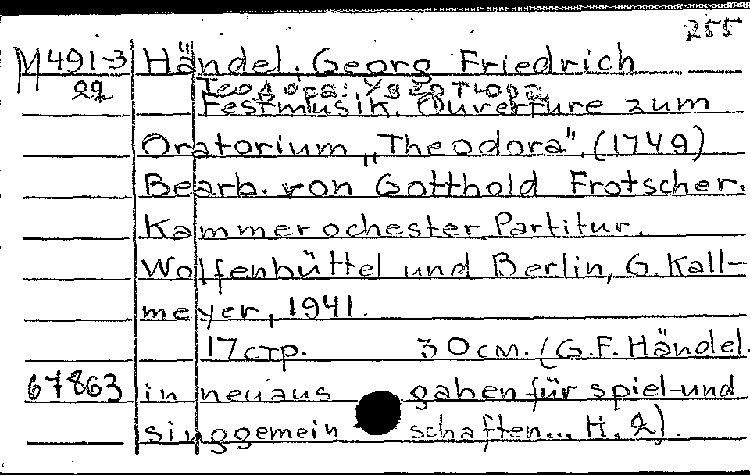 255
M491-3 Händel, Georg Friedrich
22
Festmusik. Ouverture zum
Oratorium „Theodora". (1749)
Bearb. von Gotthold Frotscher.
Kammerochester Partitur.
Wolfenbüttel und Berlin, G. Kall-
meyer, 1941.
17 стр. 30 см. (G.F. Händel.
67863 in neuaus gaben für spiel-und
singgemein schaften... H. 2).